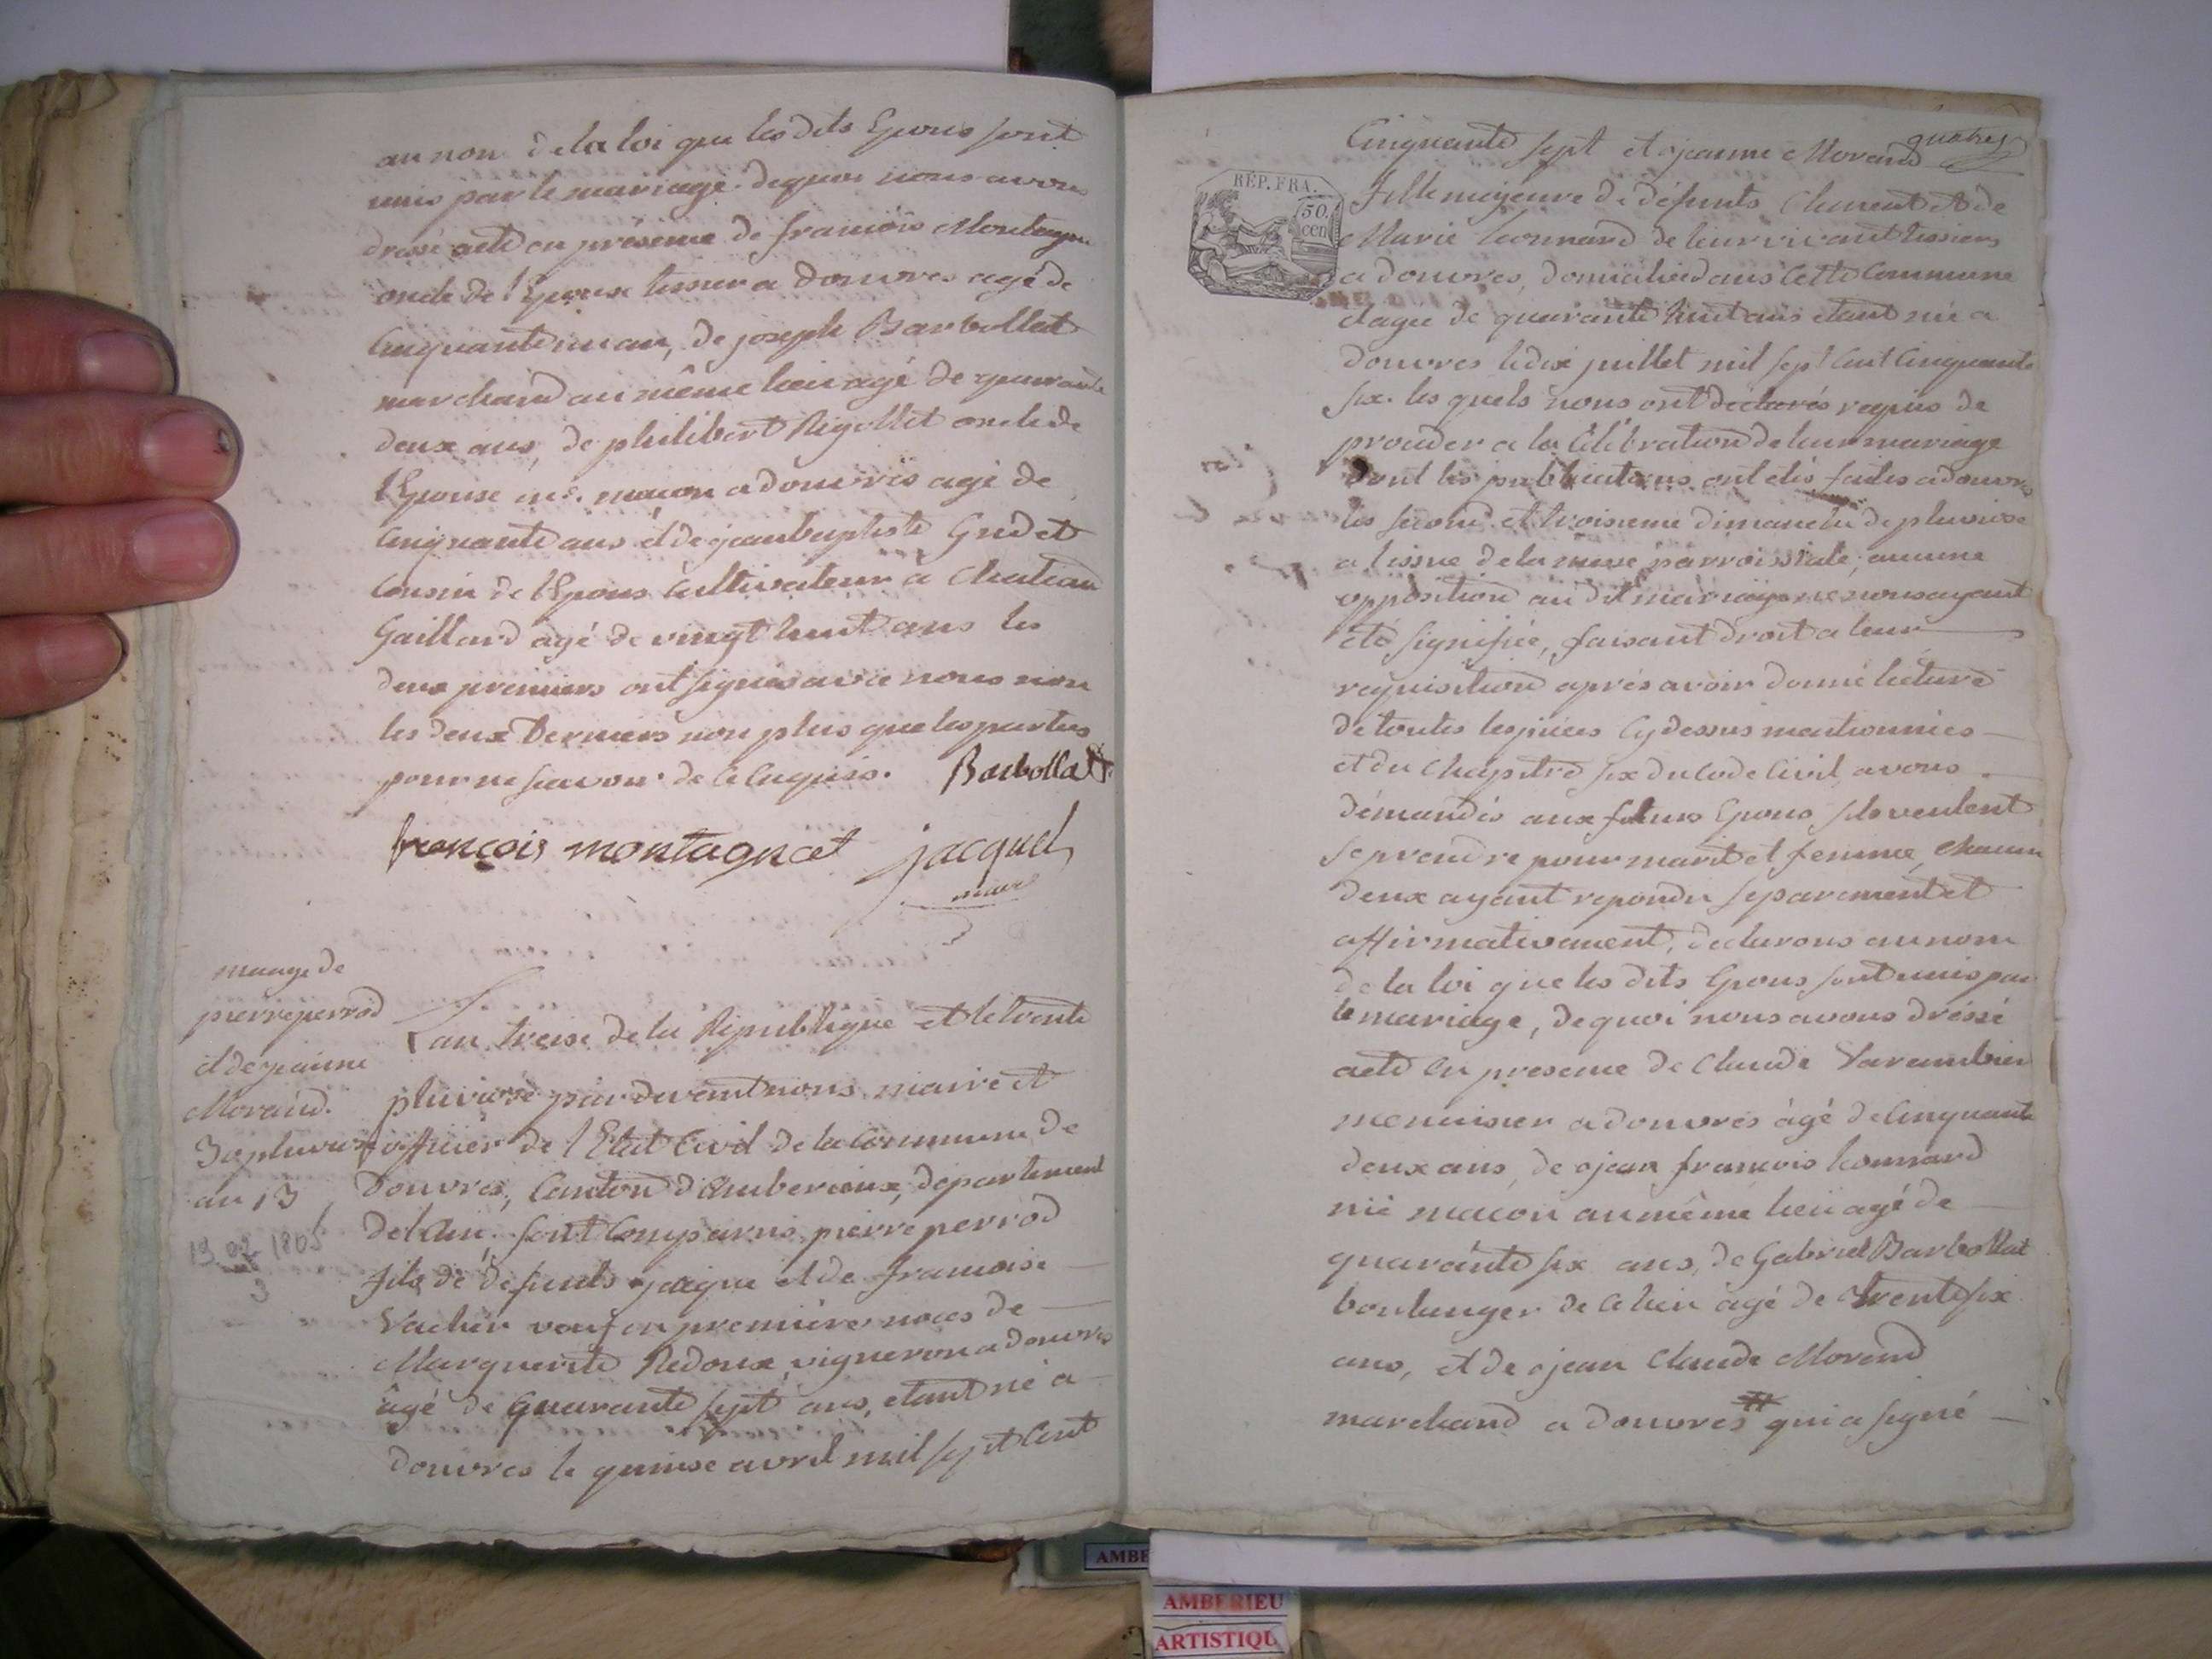 au nom de la loi que les dits Epoux sont
unis par le mariage. dequoi nous avons
dressé acte en présence de francois Montagna
oncle de l'Epouse tissier a Douvres agé de
Cinquante un an, de joseph Barbollat
marchand au même lieu agé de quarante
deux ans, de philibert Rigollet oncle de
l'Epouse me. macon a douvres agé de
Cinquante ans et de jeanbaptiste Grudet
Cousin de l'Epoux Cultivateur a Chateau
Gaillard agé de vingt huit ans les
deux premiers ont signés avec nous non
les deux derniers non plus que les parties
pour ne scavoir de ce enquis. Barbollat
françois montagnat jacquet
maire
mariage de
pierre perrod
et de jeanne
Morand.
30 pluviose
an 13
13 02 1805
3
L'an treise de la République et le trente
pluviose par devent nous maire et
officier de l'Etat Civil de la Commune de
Douvres, Canton d'Amberieux, departement
de l'Ain. sont Comparus pierre perrod
fils de défunts jaque et de francoise
Vacher veuf en premiere noces de
Marguerite Redoux vigneron a douvres
âgé de quarante sept ans, etant né a
douvres le quinse avril mil sept Cent
quatre
Cinquante sept et jeanne Morand
RÉP. FRA.
50.
cen
fille majeure de défunts Clement et de
Marie Leonnard de leur vivant tissiers
a douvres, domiciliée dans Cette Commune
etagée de quarante huit ans etant née a
douvres le dix juillet mil sept Cent Cinquante
six. les quels nous ont déclarés requis de
proceder a la Célébration de leur mariage
dont les publications ont étés faites a douvres
les second et troisieme dimanche de pluviose
a l'issue de la messe parroissiale; aucune
opposition au dit mariage ne nous ayant
été signifiée, faisant droit a leur
requisition aprés avoir donné lecture
de toutes les piéces Cy dessus mentionnées
et du Chapitre six du Code Civil, avons
démandés aux futurs Epoux s'ils veulent
se prendre pour marit et femme, Chacun
deux ayant repondu separement et
affirmativement, declarons au nom
de la loi que les dits Epoux sont unis par
le mariage, dequoi nous avons dréssé
acte en presence de Claude Varambier
menuisier a douvres âgé de Cinquante
deux ans, de jean francois Leonnard
me macon au même lieu agé de
quarante six ans, de Gabriel Barbollat
boulanger de ce lieu âgé de trente six
ans, et de jean Claude Morand
marchand a douvres qui a signé
AMBE
AMBERIEU
ARTISTIQU